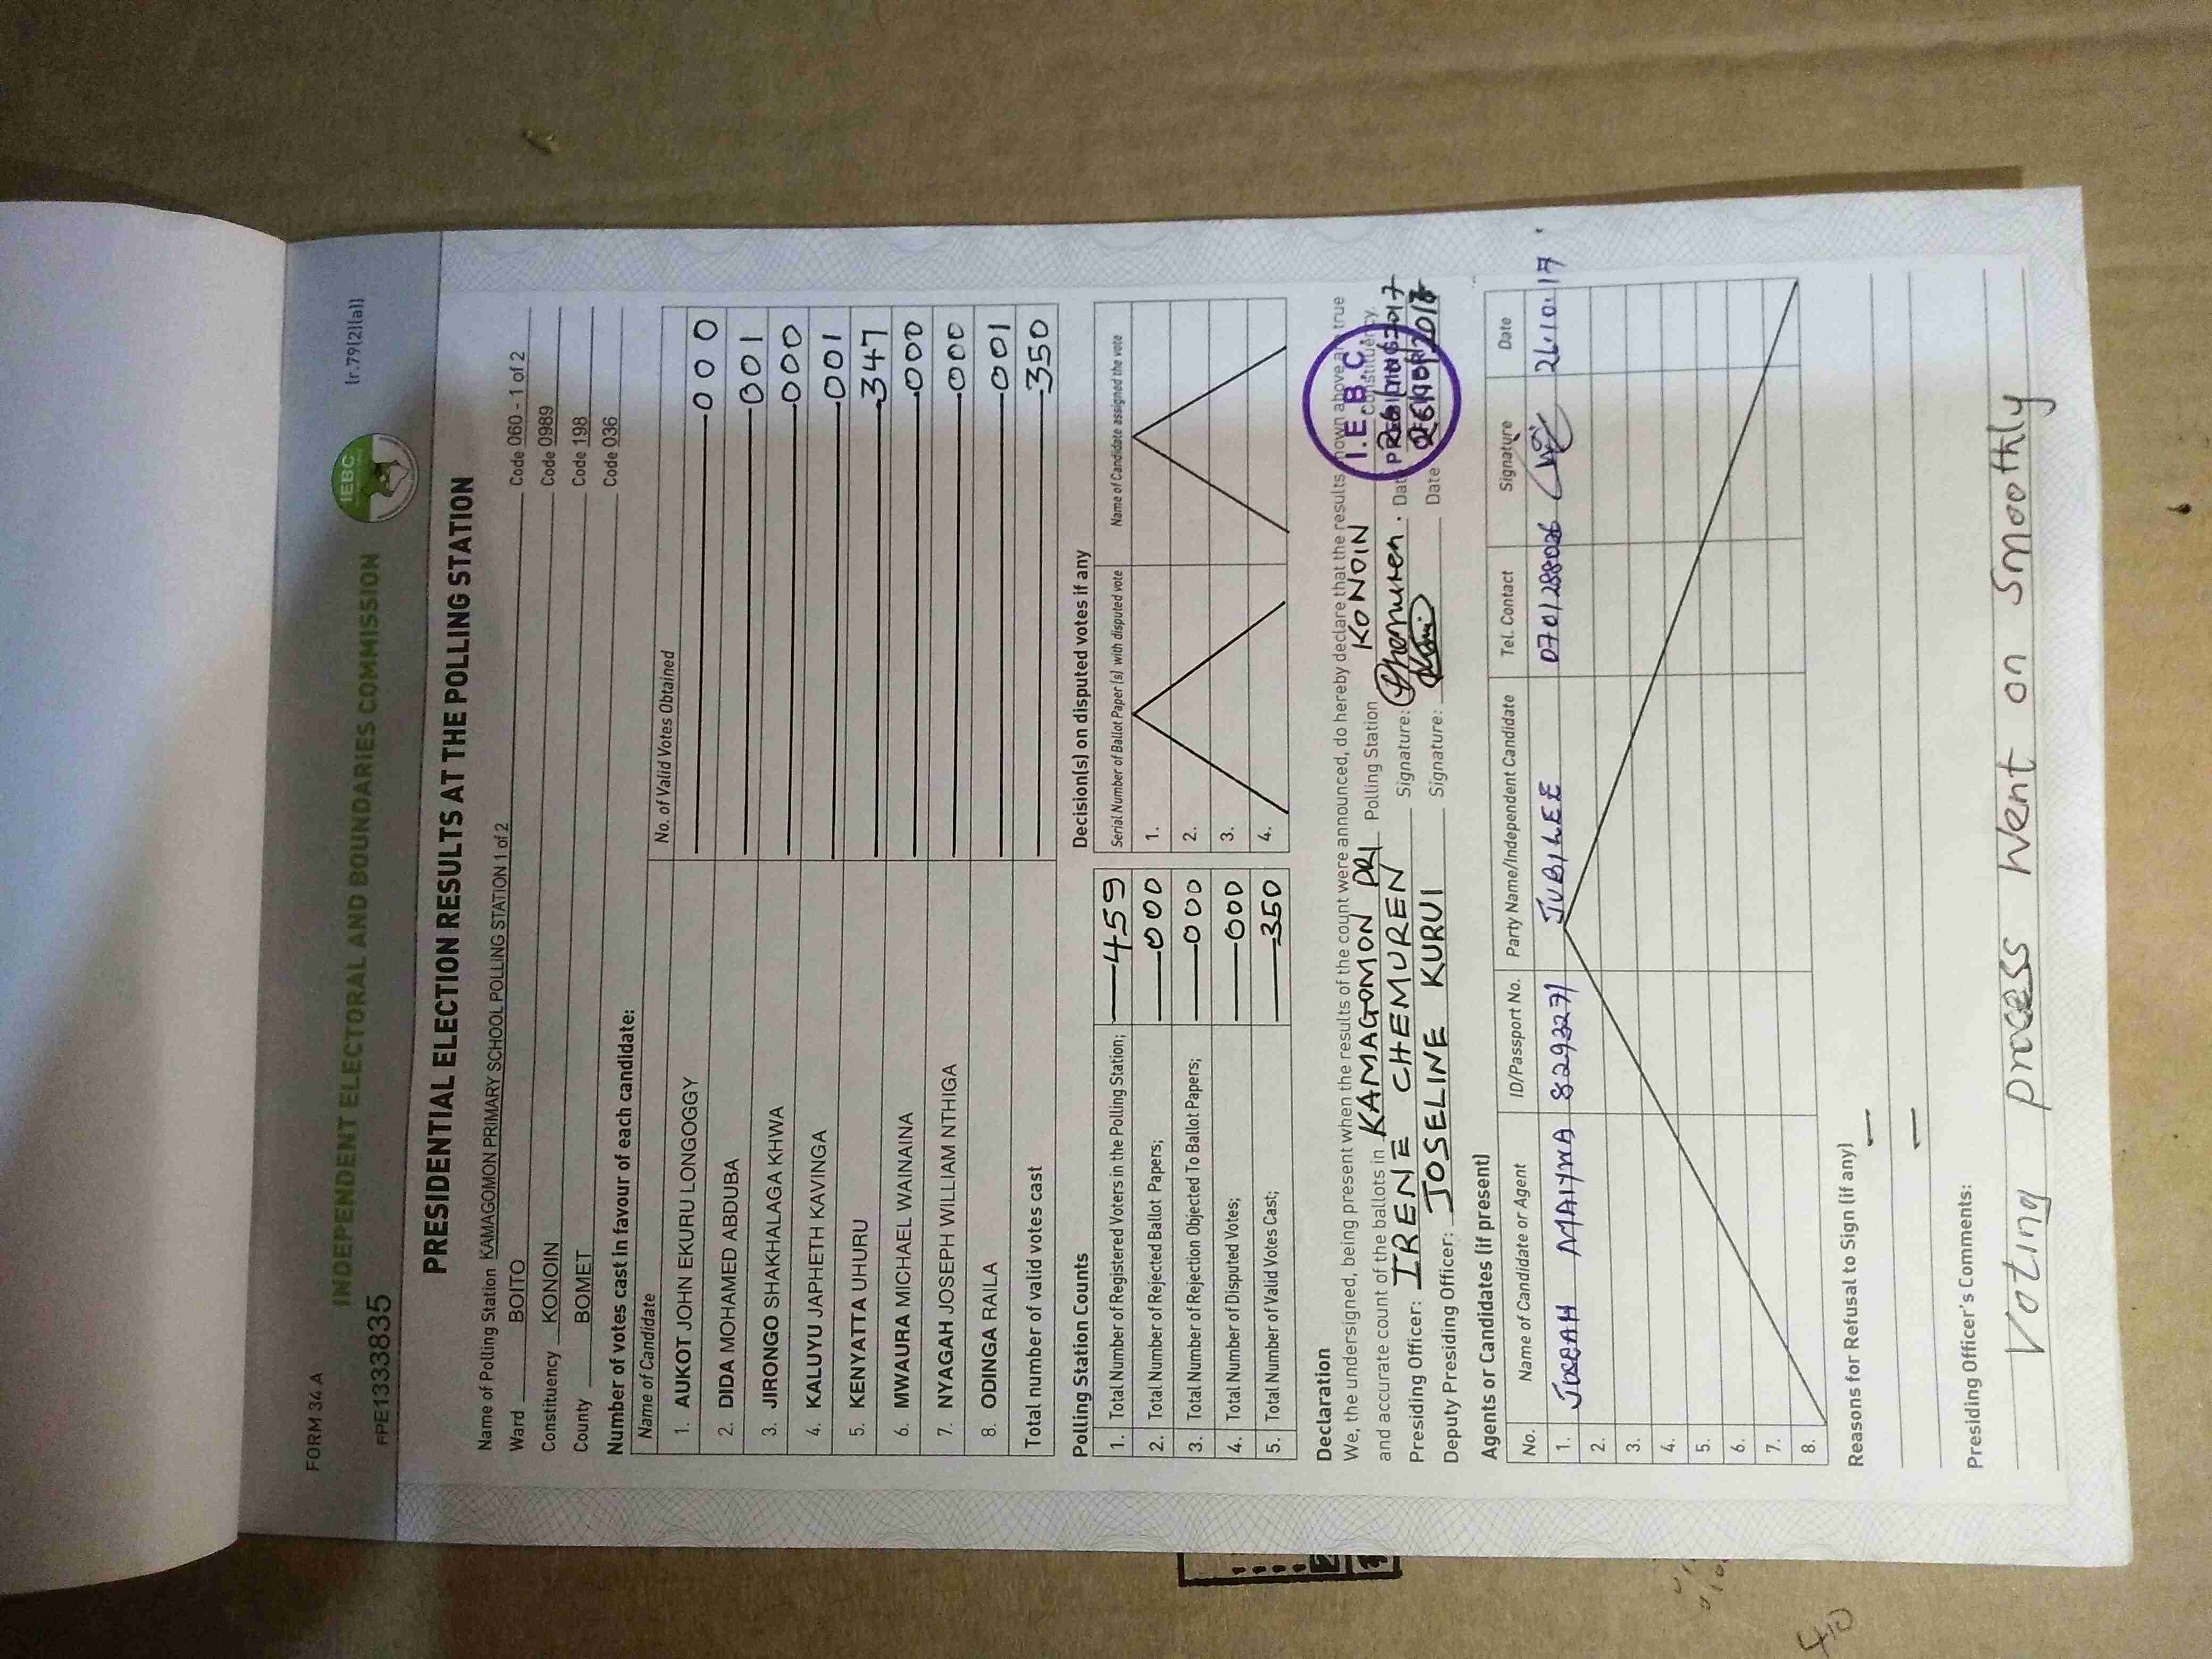 FORM 34 A (r.79(2)(a))
INDEPENDENT ELECTORAL AND BOUNDARIES COMMISSION
IEBC
FPE1333835
PRESIDENTIAL ELECTION RESULTS AT THE POLLING STATION
Name of Polling Station KAMAGOMON PRIMARY SCHOOL POLLING STATION 1 of 2 Code 060 - 1 of 2
Ward BOITO Code 0989
Constituency KONOIN Code 198
County BOMET Code 036
Number of votes cast in favour of each candidate:
Name of Candidate No. of Valid Votes Obtained
1. AUKOT JOHN EKURU LONGOGGY 000
2. DIDA MOHAMED ABDUBA 001
3. JIRONGO SHAKHALAGA KHWA 000
4. KALUYU JAPHETH KAVINGA 001
5. KENYATTA UHURU 347
6. MWAURA MICHAEL WAINAINA 000
7. NYAGAH JOSEPH WILLIAM NTHIGA 000
8. ODINGA RAILA 001
Total number of valid votes cast 350
Polling Station Counts
1. Total Number of Registered Voters in the Polling Station; 459
2. Total Number of Rejected Ballot Papers; 000
3. Total Number of Rejection Objected To Ballot Papers; 000
4. Total Number of Disputed Votes; 000
5. Total Number of Valid Votes Cast; 350
Decision(s) on disputed votes if any
Serial Number of Ballot Paper(s) with disputed vote Name of Candidate assigned the vote
1.
2.
3.
4.
Declaration
We, the undersigned, being present when the results of the count were announced, do hereby declare that the results shown above are true
and accurate count of the ballots in KAMAGOMON PRI Polling Station KONOIN Constituency.
Presiding Officer: IRENE CHEMUREN Signature: Chemuren. Date
Deputy Presiding Officer: JOSELINE KURUI Signature: Date
I.E.B.C.
Agents or Candidates (if present)
No. Name of Candidate or Agent ID/Passport No. Party Name/Independent Candidate Tel. Contact Signature Date
1. JOSEAH MAIYWA 8229271 JUBILEE 0701288026 26.10.17
2.
3.
4.
5.
6.
7.
8.
Reasons for Refusal to Sign (if any)
Presiding Officer's Comments:
Voting process went on smoothly
410